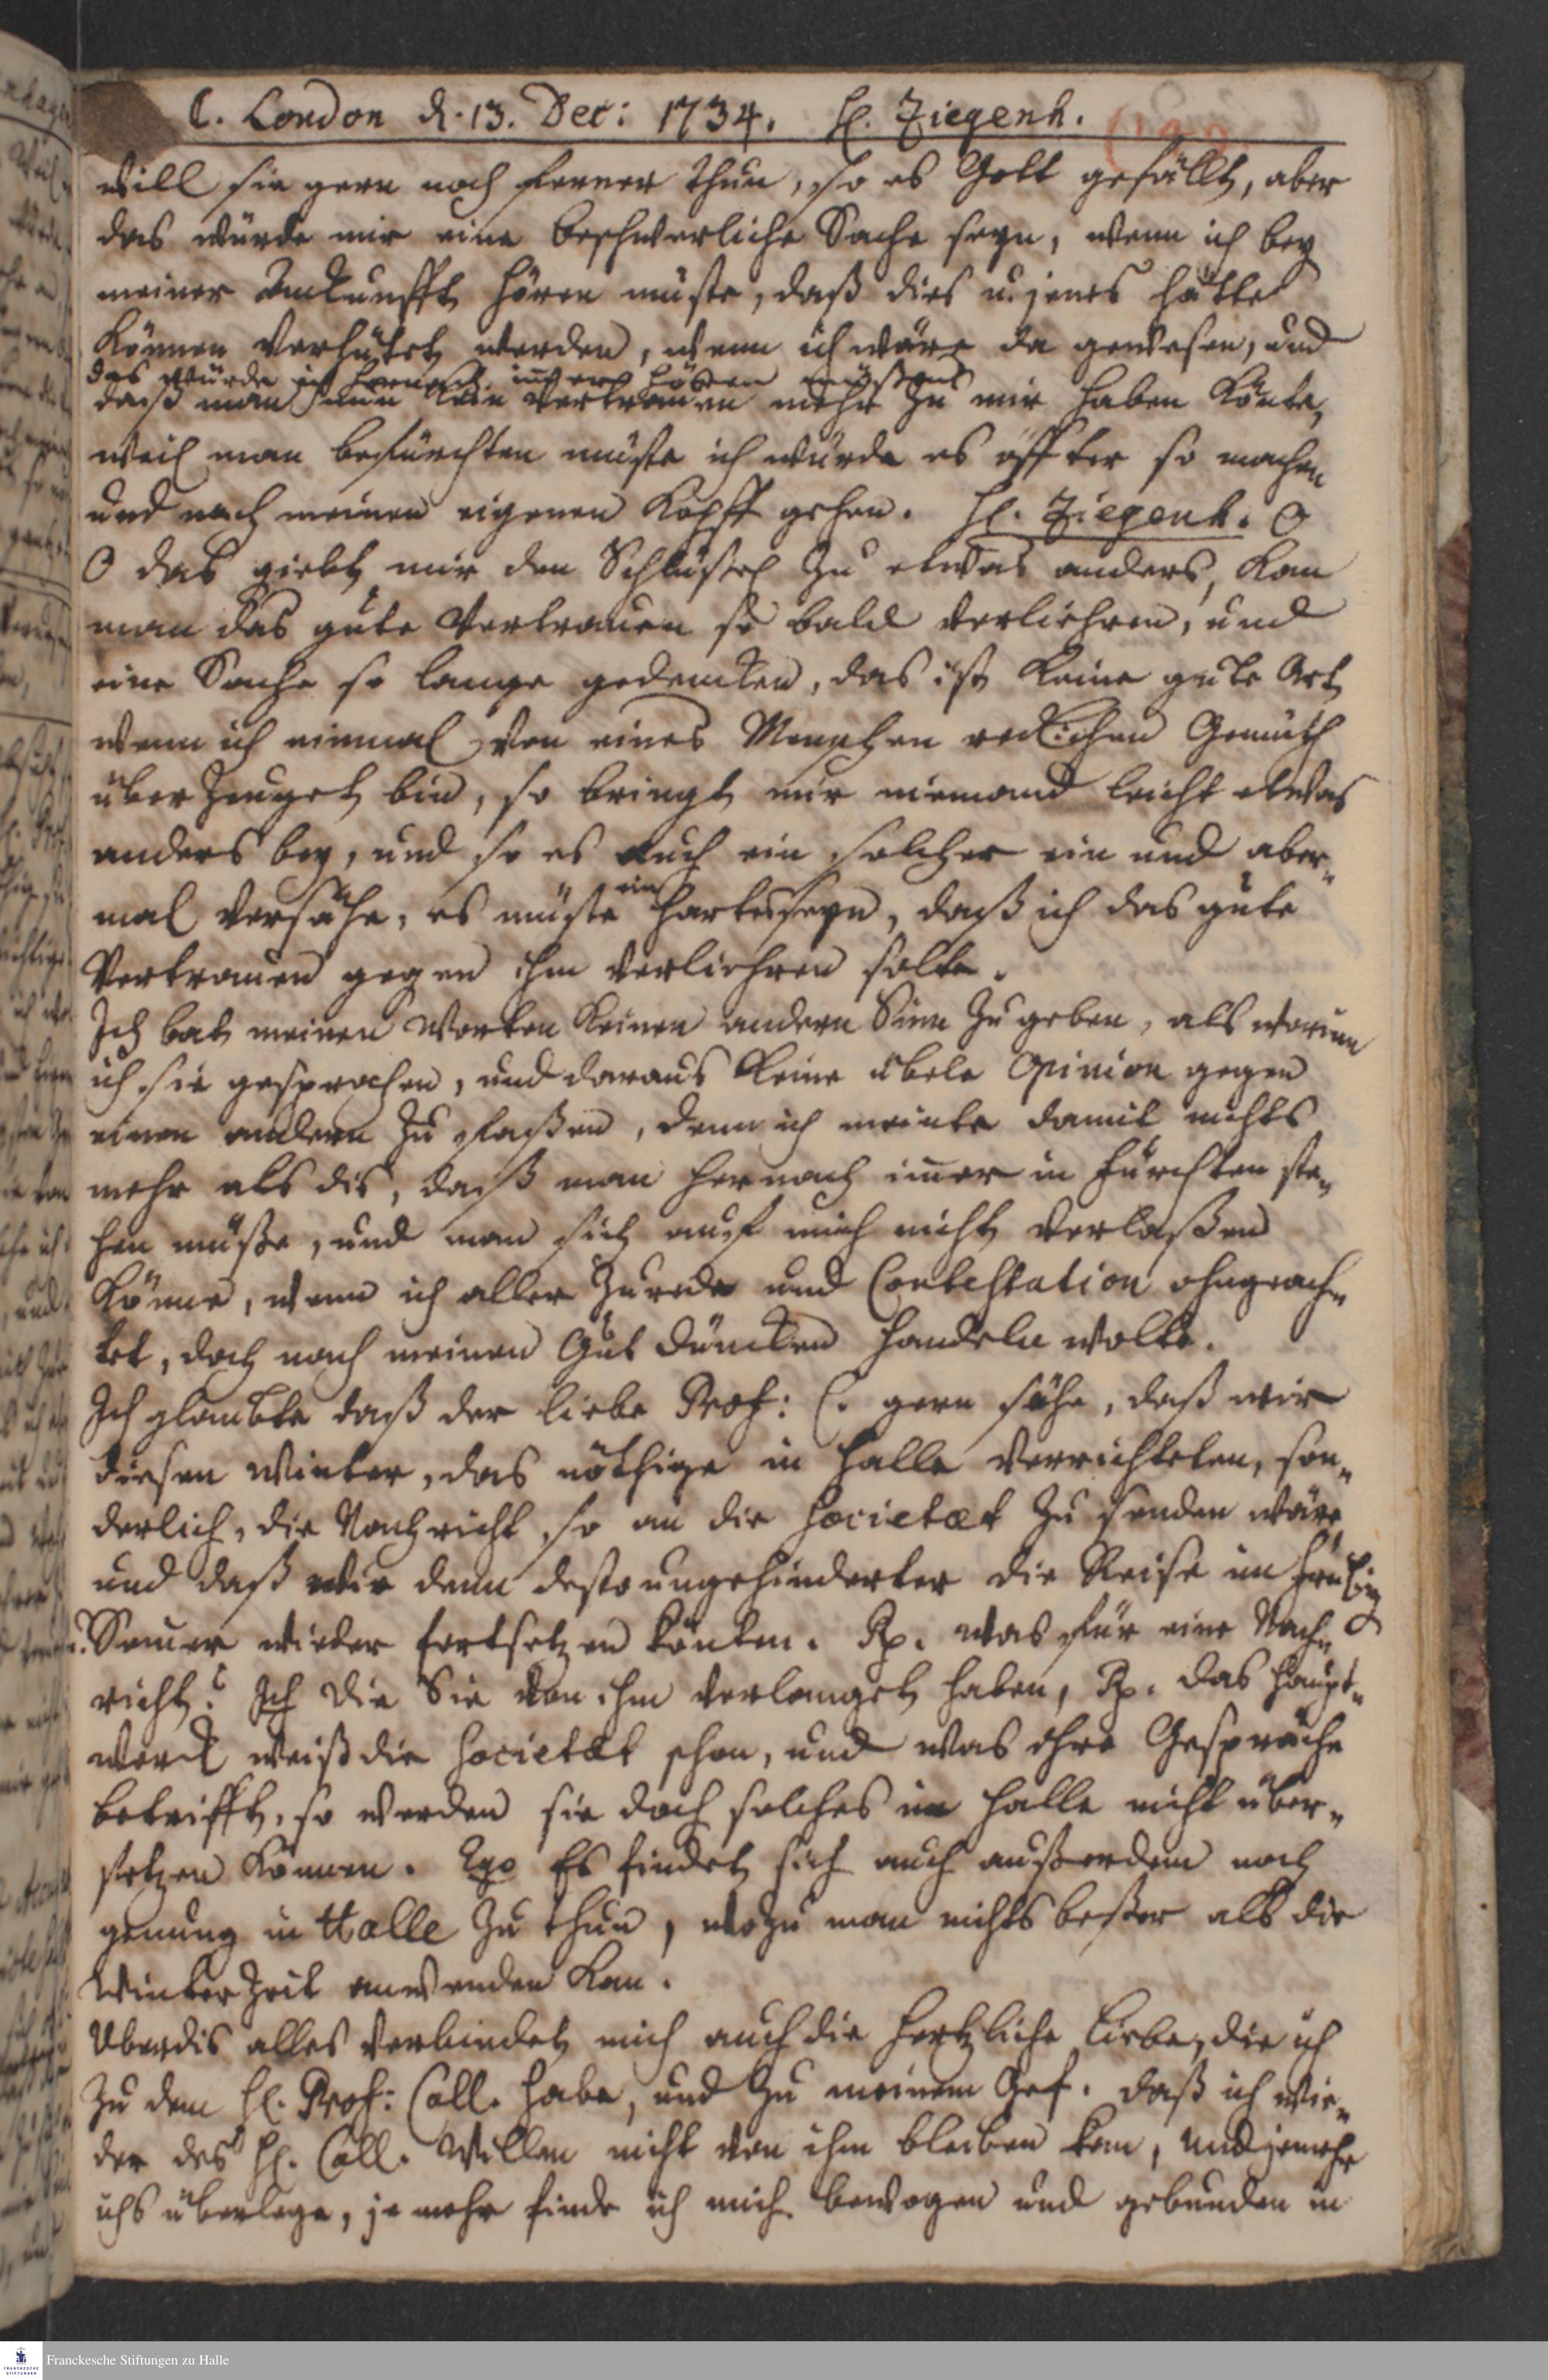 C. London d. 13. Dec: 1734. H. Ziegenh.
will sie gern noch ferner thun, so es Gott gefällt, aber
das würde mir eine beschwerliche Sache seyn, wenn ich bey
meiner Ankunfft hören müste, daß dies u. jenes hätte
können verhütet werden, wenn ich wäre da gewesen, und
das würde ich hernach immer hören müßen
daß man nun kein Vertrauen mehr zu mir haben könte,
weil man befürchten müste ich würde es öffter so machen
und nach meinen eigenen Kopff gehen. H. Ziegenh. O
O das giebt mir den Schlüßel zu etwas anders, kan
man das gute Vertrauen so bald verliehren, und
eine Sache so lange gedencken, das ist keine gute Art
wenn ich einmal von eines Menschen redlichen Gemüth
überzeuget bin, so bringt mir niemand leicht etwas
anders bey, und so es auch ein solcher ein und aber-
mal versähe, es müste ein hartes seyn, daß ich das gute
Vertrauen gegen ihm verliehren solte.
Ich bat meinen Worten keinen andern Sinn zu geben, als worinn
ich sie gesprochen, und daraus keine übele Opinion gegen
einen andern zu faßen, denn ich meinte damit nichts
mehr als dis, daß man hernach immer in Furchten ste-
hen müße, und man sich auf mich nicht verlaßen
könne, wenn ich aller Zurede und Contestation ohngeach-
tet, doch nach meinen Gutdüncken handeln wolte.
Ich glaubte daß der liebe Prof: C. gern sähe, daß wir
diesen Winter, das nöthige in Halle verrichteten, son-
derlich, die Nachricht so an die Societæt zu senden wäre
und daß wir denn desto ungehinderter die Reise im Frühling
u. Sommer wieder fortsetzen könten. Rp. was für eine Nach-
richt? Ich die Sie von ihm verlanget haben, Rp. das Haupt-
werck weiß die Societæt schon, und was ihre Gespräche
betrifft, so werden sie doch solches in Halle nicht über-
setzen können. Ego Es findet sich auch außerdem noch
genung in Halle zu thun, wozu man nichts beßer als die
Winterzeit anwenden kan.
Uberdis alles verbindet mich auch die hertzliche Liebe, die ich
zu dem H. Prof: Call. habe, und zu meinem Gef. daß ich wie-
der des H. Call. Willen nicht von ihm bleiben kan, und jemehr
ichs überlege, je mehr finde ich mich bewogen und gebunden in
Franckesche Stiftungen zu Halle